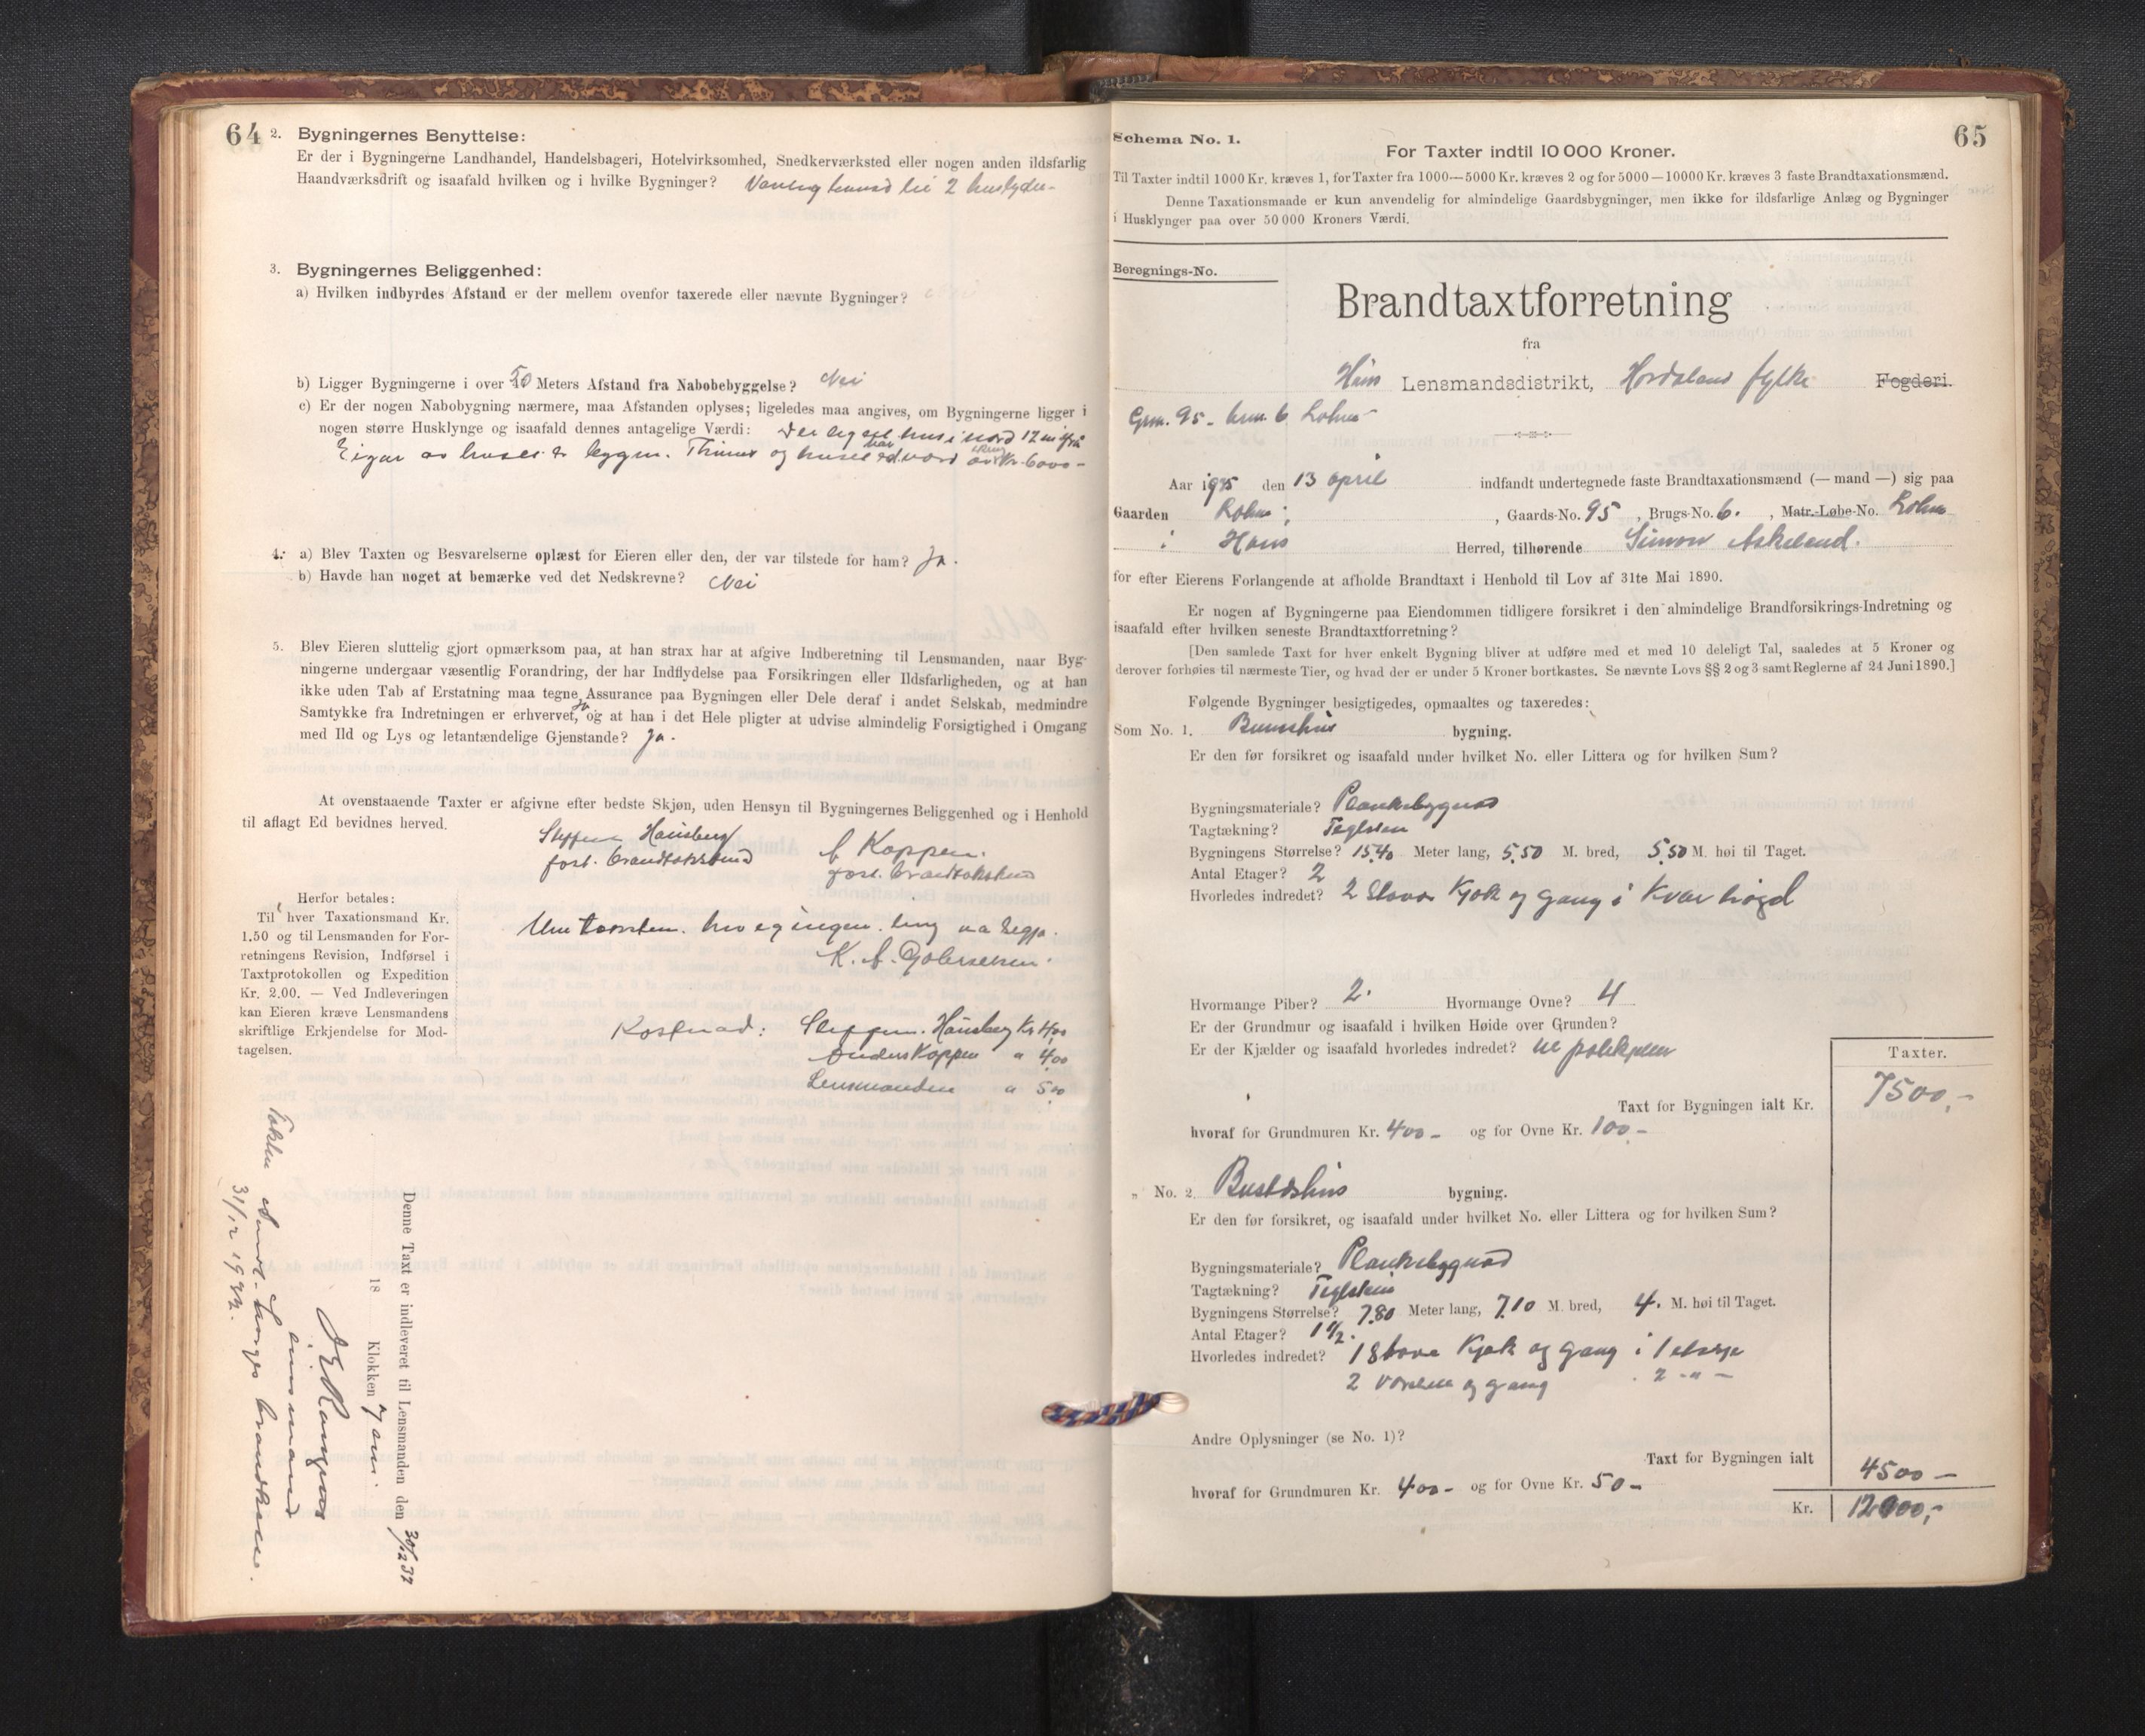 64
2. Bygningernes Benyttelse:
Er der i Bygningerne Landhandel, Handelsbageri, Hotelvirksomhed, Snedkerværksted eller nogen anden ildsfarlig
Haandværksdrift og isaafald hvilken og i hvilke Bygninger? Vanleg til 2
3. Bygningernes Beliggenhed:
a) Hvilken indbyrdes Afstand er der mellem ovenfor taxerede eller nævnte Bygninger?
b) Ligger Bygningerne i over 50 Meters Afstand fra Nabobebyggelse? Nei
c) Er der nogen Nabobygning nærmere, maa Afstanden oplyses; ligeledes maa angives, om Bygningerne ligger i
nogen større Husklynge og isaafald dennes antagelige Værdi: Der ligg eit hus i nord 12 m ifrå
Eigar av huset er byggm. og huset Kr. 6000-
4. a) Blev Taxten og Besvarelserne oplæst for Eieren eller den, der var tilstede for ham? Ja.
b) Havde han noget at bemærke ved det Nedskrevne? Nei
5. Blev Eieren sluttelig gjort opmærksom paa, at han strax har at afgive Indberetning til Lensmanden, naar Byg-
ningerne undergaar væsentlig Forandring, der har Indflydelse paa Forsikringen eller Ildsfarligheden, og at han
ikke uden Tab af Erstatning maa tegne Assurance paa Bygningen eller Dele deraf i andet Selskab, medmindre
Samtykke fra Indretningen er erhvervet, Ja og at han i det Hele pligter at udvise almindelig Forsigtighed i Omgang
med Ild og Lys og letantændelige Gjenstande? Ja.
At ovenstaaende Taxter er afgivne efter bedste Skjøn, uden Hensyn til Bygningernes Beliggenhed og i Henhold
til aflagt Ed bevidnes herved.
Steffen Hausberg A Koppen.
fost. brandtakstmand fost. brandtakstmand
Herfor betales:
Til hver Taxationsmand Kr.
1.50 og til Lensmanden for For-
retningens Revision, Indførsel i
Taxtprotokollen og Expedition
Kr. 2.00. — Ved Indleveringen
kan Eieren kræve Lensmandens
skriftlige Erkjendelse for Mod-
tagelsen.
Um taksten. hev eg ingen ting aa segja.
Kostnad: Steffen Hausberg Kr 4,00
Anders Koppen " 4,00
Lensmanden " 5,00
Denne Taxt er indleveret til Lensmanden den 30/12 32
18 Klokken 7 em.
lensmand
Takten sendt Norges brandkasse.
31/12 1932.
65
Schema No. 1.
For Taxter indtil 10 000 Kroner.
Til Taxter indtil 1000 Kr. kræves 1, for Taxter fra 1000—5000 Kr. kræves 2 og for 5000—10000 Kr. kræves 3 faste Brandtaxationsmænd.
Denne Taxationsmaade er kun anvendelig for almindelige Gaardsbygninger, men ikke for ildsfarlige Anlæg og Bygninger
i Husklynger paa over 50 000 Kroners Værdi.
Beregnings-No.
Brandtaxtforretning
fra
Haus Lensmandsdistrikt, Hordaland fylke Fogderi.
Grn. 95 - brn. 6 Lohne
Aar 1935 den 13 april indfandt undertegnede faste Brandtaxationsmænd (— mand —) sig paa
Gaarden Lohne, Gaards-No. 95, Brugs-No. 6., Matr.-Løbe-No. Lohne
i Haus Herred, tilhørende Simon Askeland.
for efter Eierens Forlangende at afholde Brandtaxt i Henhold til Lov af 31te Mai 1890.
Er nogen af Bygningerne paa Eiendommen tidligere forsikret i den almindelige Brandforsikrings-Indretning og
isaafald efter hvilken seneste Brandtaxtforretning?
[Den samlede Taxt for hver enkelt Bygning bliver at udføre med et med 10 deleligt Tal, saaledes at 5 Kroner og
derover forhøies til nærmeste Tier, og hvad der er under 5 Kroner bortkastes. Se nævnte Lovs §§ 2 og 3 samt Reglerne af 24 Juni 1890.]
Følgende Bygninger besigtigedes, opmaaltes og taxeredes:
Som No. 1. bygning.
Er den før forsikret og isaafald under hvilket No. eller Littera og for hvilken Sum?
Bygningsmateriale? Plankebygnad
Tagtækning? Teglstein
Bygningens Størrelse? 15.40 Meter lang, 5.50 M. bred, 5.50 M. høi til Taget.
Antal Etager? 2
Hvorledes indredet? 2 Stova Kjøk og gang i kvar høgd
Hvormange Piber? 2. Hvormange Ovne? 4
Er der Grundmur og isaafald i hvilken Høide over Grunden?
Er der Kjælder og isaafald hvorledes indredet?
Taxter.
Taxt for Bygningen ialt Kr. 7500,-
hvoraf for Grundmuren Kr. 400 - og for Ovne Kr. 100 -
" No. 2. Bustadhus bygning.
Er den før forsikret, og isaafald under hvilket No. eller Littera og for hvilken Sum?
Bygningsmateriale? Plankebygnad
Tagtækning? Teglstein
Bygningens Størrelse? 7.80 Meter lang, 7.10 M. bred, 4. M. høi til Taget.
Antal Etager? 1 1/2.
Hvorledes indredet? 1 Stova Kjøk og gang i 1 etasje
2 værelse og gang . 2 -"-
Andre Oplysninger (se No. 1)?
Taxt for Bygningen ialt 4500 -
hvoraf for Grundmuren Kr. 400 - og for Ovne Kr. 50 -
Kr. 12000,-